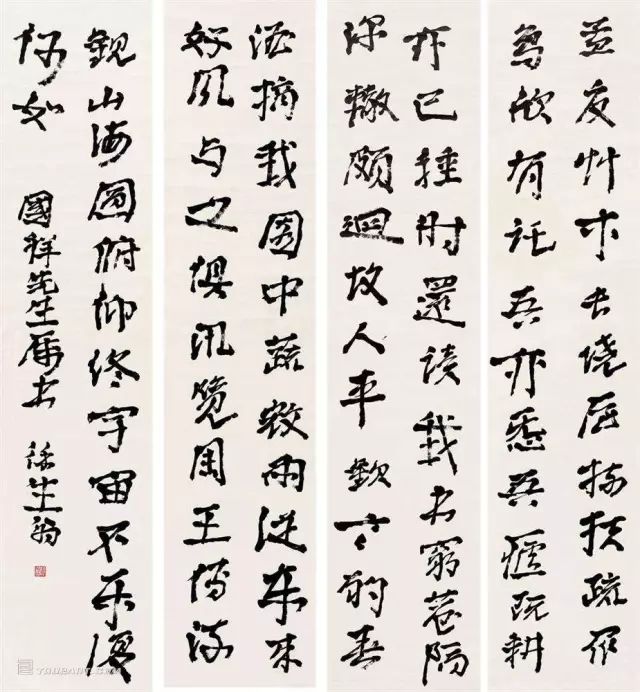 孟夏艸木長繞屋樹扶疏眾
鳥欣有託吾亦愛吾廬既耕
亦已種時還讀我書窮巷隔
深轍頗迴故人車歡言酌春
酒摘我園中蔬微雨從東來
好風与之俱汎覽周王傳流
觀山海圖俯仰終宇宙不樂復
何如
國祥先生屬書
徐生翁